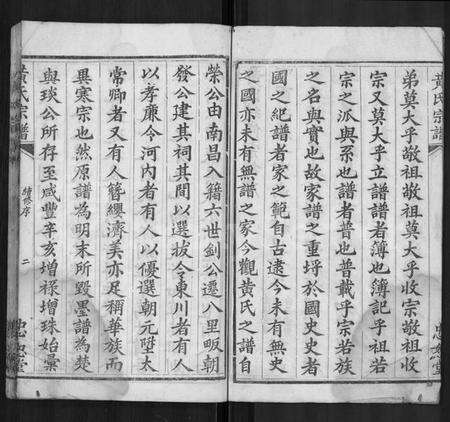 黄氏宗譜
弟莫大乎敬祖敬祖莫大乎收宗敬祖收
宗又莫大乎立譜譜者簿也簿記乎祖若
宗之派與系也譜者普也普載乎宗若族
之名與實也故家譜之重埒於國史史者
國之紀譜者家之範自古迄今未有無史
之國亦未有無譜之家今觀黄氏之譜自
榮公由南昌入籍六世劍公遷八里畈朝
發公建其祠其間以選拔令東川者有人
以孝廉令河内者有人以優選朝元陞太
常卿者又有人簪纓濟美亦足稱華族而
異寒宗也然原譜為明末所毀墨譜為楚
與琰公所存至咸豐辛亥增祿增珠始彙
黄氏宗譜
續修序
二